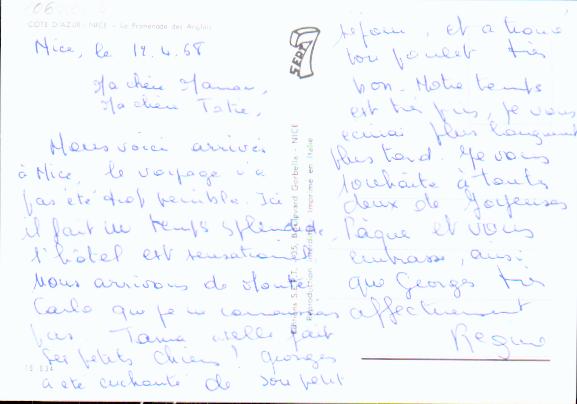 COTE D'AZUR - NICE - La Promenade des Anglais
Nice, le 12.4.68
Ma chère Maman,
Ma chère Tatie,
Nous voici arrivés
à Nice, le voyage n'a
pas été trop pénible. Ici
il fait un temps splendide
l'hôtel est sensationnel
nous arrivons de Monte
Carlo que je ne connaissais
pas. Tania veille fait
ses petits chiens! Georges
a été enchanté de son petit
séjour, et a trouvé
ton poulet très
bon. Notre temps
est très pris, je vous
écrirai plus longuement
plus tard. Je vous
souhaite à toutes
deux de Joyeuses
Pâques et vous
embrasse, ainsi
que Georges très
affectueusement
Régine
SEPT
Editions S.E.P.T. Boulevard Gorbella - NICE
Reproduction interdite Imprimé en Italie